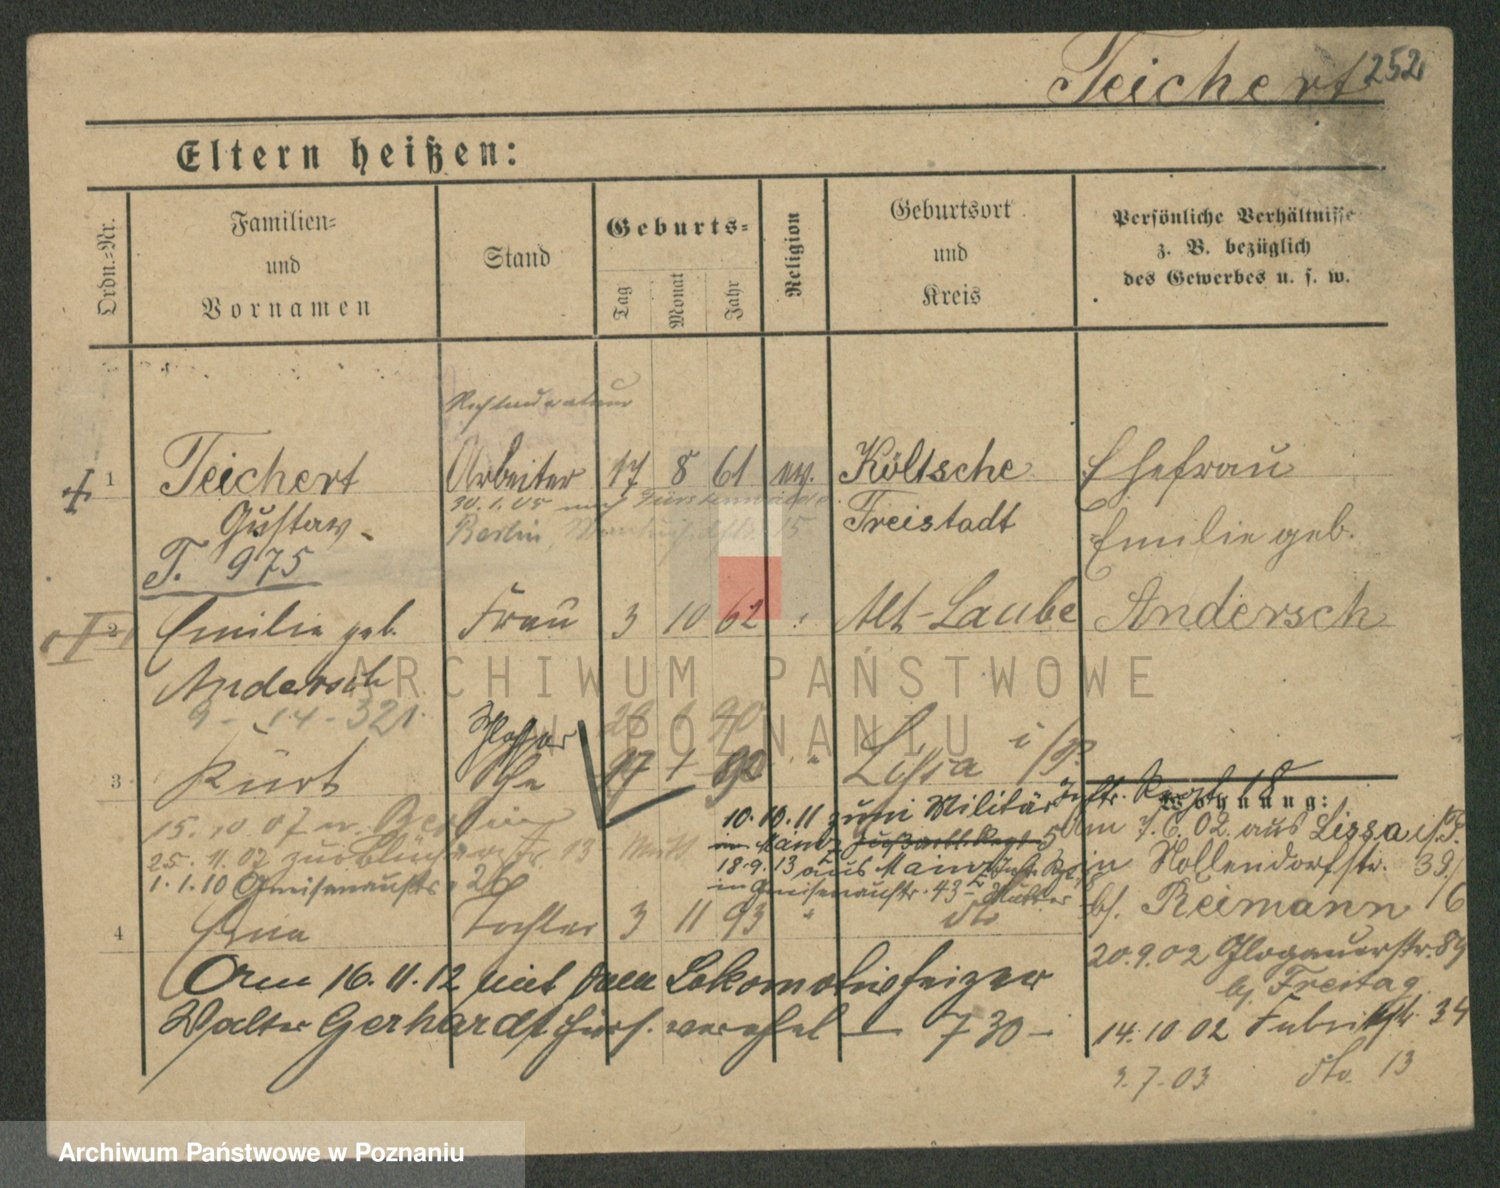 Teichert 252
Eltern heißen:
Ordn.-Nr.
Familien-
und
Vornamen
Stand
Geburts-
Tag
Monat
Jahr
Religion
Geburtsort
und
Kreis
Persönliche Verhältnisse
z. B. bezüglich
des Gewerbes u. s. w.
1 Teichert Arbeiter 17 8 61 ev. Költsche Ehefrau
Gustav Freistadt Emilie geb.
Berlin, 15
T. 975
2 Emilie geb. Frau 3 10 62 Alt-Laube Andersch
Andersch
9 - 14 - 321
3 Kurt 1 Lissa i/P.
Wohnung:
10.10.11 zum Militär Regt. 18
Am 7.6.02 aus Lissa i/P.
15.10.07 n. Berlin
in Mainz 5
25.11.07 zur. Blücherstr. 13
18.9.13 aus Mainz
in Nollendorfstr. 39/
1.1.10 Gneisenaustr. 26
in Gneisenaustr. 43 Mutter
bf. Reimann 16
4 Erna Tochter 3 11 93 " dto
20.9.02 Glogauerstr. 89
bf. Freitag
Am 16.11.12 mit dem Lokomotivheizer
Walter Gerhardt verehel — 730 —
14.10.02 Fabrikstr. 34
3.7.03 dto. 13
ARCHIWUM PAŃSTWOWE
W POZNANIU
Archiwum Państwowe w Poznaniu